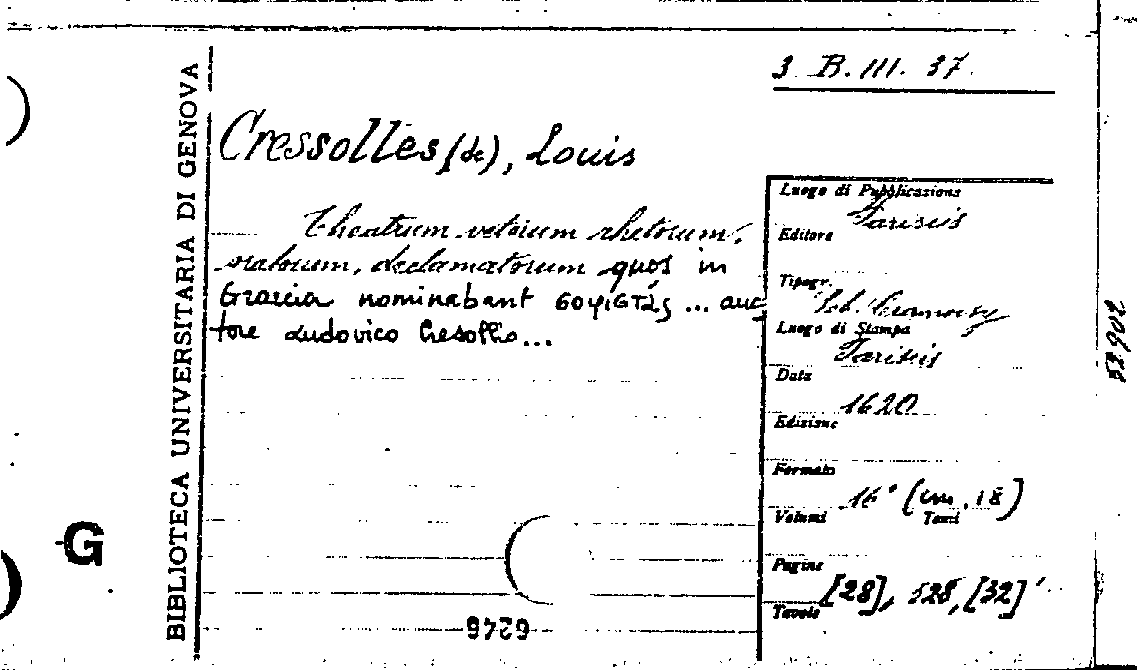 3 B. III. 37.
BIBLIOTECA UNIVERSITARIA DI GENOVA
Cressolles (de), Louis
Theatrum veterum rhetorum,
oratorum, declamatorum quos in
Graecia nominabant σοφιστάς ... auc
tore Ludovico Cresollio...
Luogo di Pubblicazione
Parisiis
Editore
Tipogr.
Seb. Cramoisy
Luogo di Stampa
Parisiis
Data
1620
Edizione
Formato
16° (cm. 18)
Volumi Tomi
Pagine
[28], 528, [32]
Tavole
G
6248